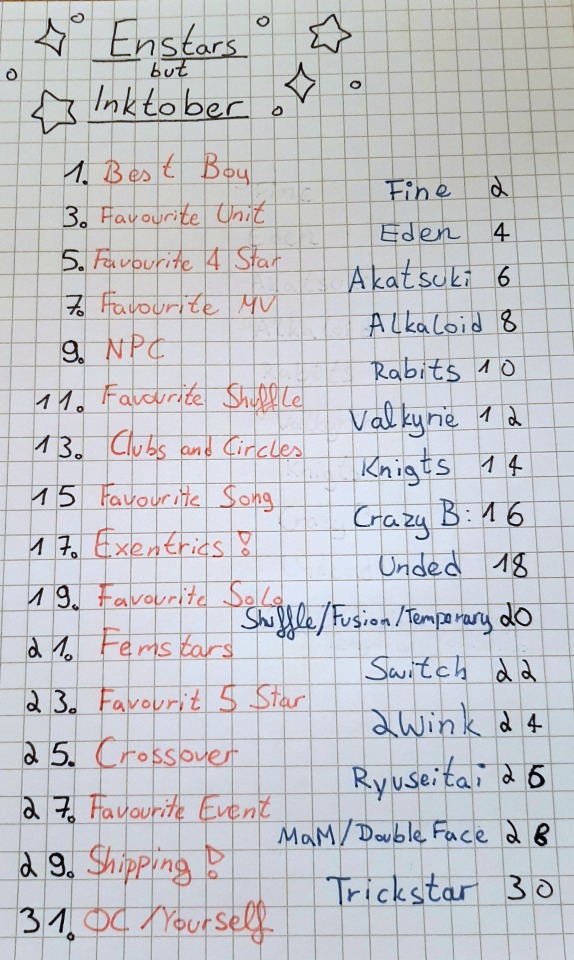 Enstars
but
Inktober
1. Best Boy
Fine 2
3. Favourite Unit
Eden 4
5. Favourite 4 Star
Akatsuki 6
7. Favourite MV
Alkaloid 8
9. NPC
Rabits 10
11. Favourite Shuffle
Valkyrie 12
13. Clubs and Circles
Knigts 14
15 Favourite Song
Crazy B: 16
17. Exentrics !
Unded 18
19. Favourite Solo
Shuffle/Fusion/Temporary 20
21. Femstars
Switch 22
23. Favourit 5 Star
2Wink 24
25. Crossover
Ryuseitai 26
27. Favourite Event
MaM/Double Face 28
29. Shipping !
Trickstar 30
31. OC/Yourself